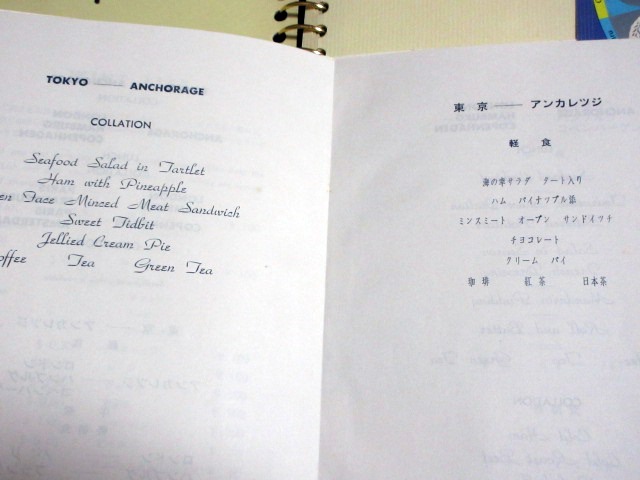 TOKYO —— ANCHORAGE
COLLATION
Seafood Salad in Tartlet
Ham with Pineapple
en Face Minced Meat Sandwich
Sweet Tidbit
Jellied Cream Pie
offee Tea Green Tea
東京 —— アンカレッジ
軽食
海の幸サラダ タート入り
ハム パイナップル添
ミンスミート オープン サンドイッチ
チョコレート
クリーム パイ
珈琲 紅茶 日本茶